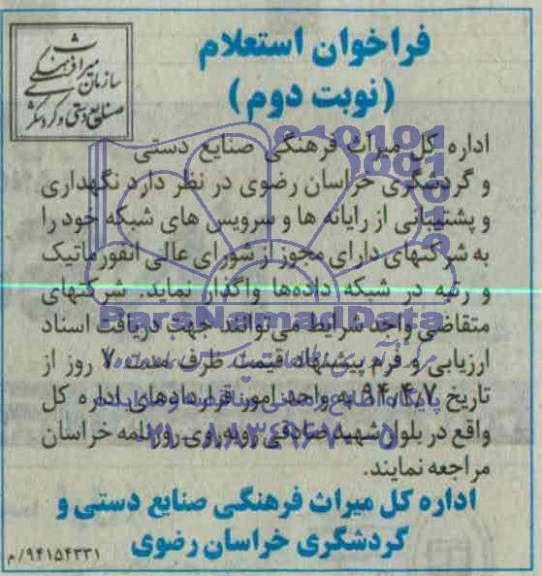 فراخوان استعلام
(نوبت دوم)
سازمان میراث فرهنگی
صنایع دستی و گردشگری
اداره کل میراث فرهنگی صنایع دستی
و گردشگری خراسان رضوی در نظر دارد نگهداری
و پشتیبانی از رایانه ها و سرویس های شبکه خود را
به شرکتهای دارای مجوز از شورای عالی انفورماتیک
و رتبه در شبکه دادهها واگذار نماید. شرکتهای
متقاضی واجد شرایط می توانند جهت دریافت اسناد
ارزیابی و فرم پیشنهاد قیمت ظرف مدت ۷ روز از
تاریخ ۹۴٫۴٫۷ به واحد امور قراردادهای اداره کل
واقع در بلوار شهید صادقی روبروی روزنامه خراسان
مراجعه نمایند.
اداره کل میراث فرهنگی صنایع دستی و
گردشگری خراسان رضوی
۹۴۱۵۴۳۳۱/م
ParsNamadData